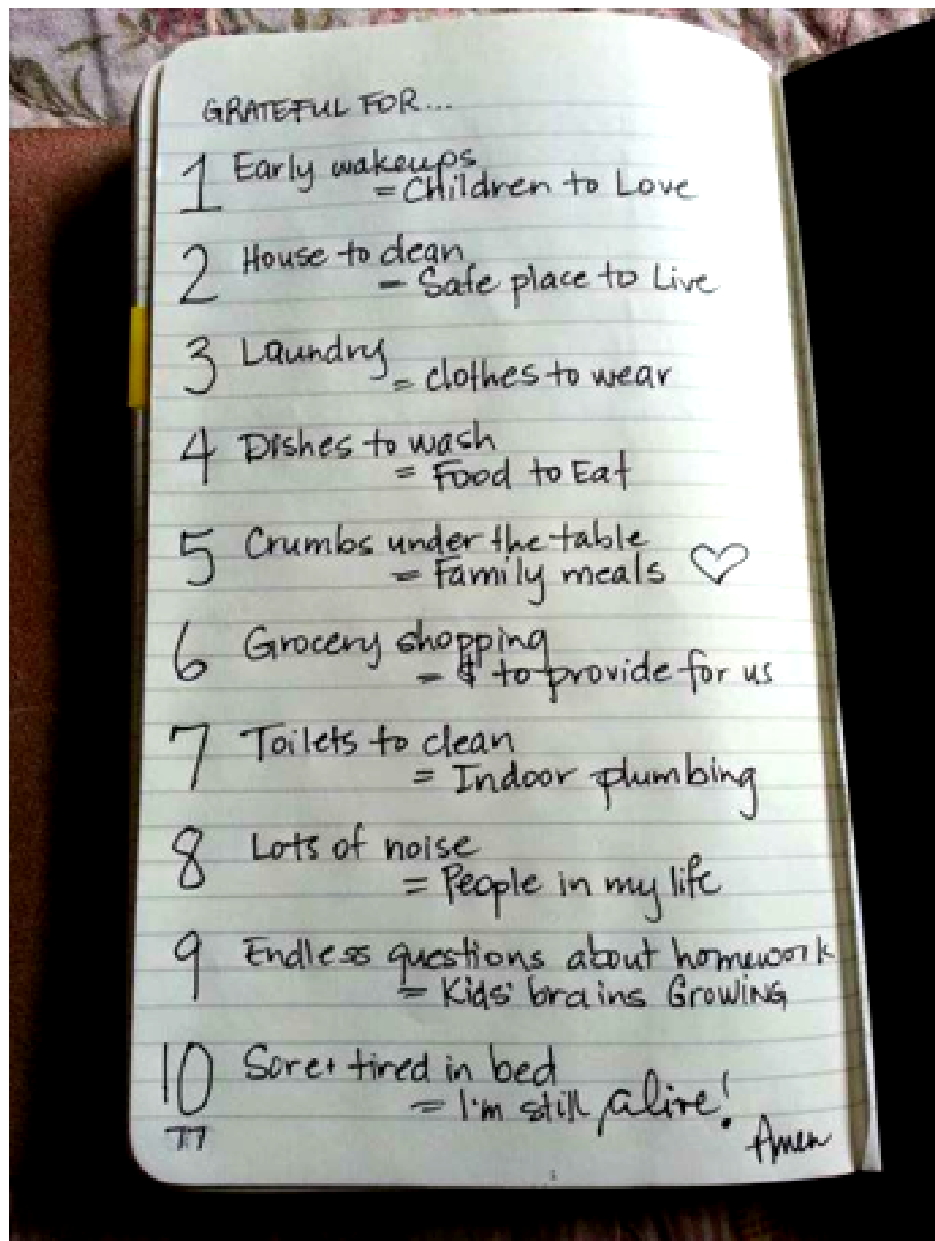 GRATEFUL FOR...
1 Early wakeups
= Children to Love
2 House to clean
= Safe place to Live
3 Laundry
= clothes to wear
4 Dishes to wash
= Food to Eat
5 Crumbs under the table
= Family meals ♡
6 Grocery shopping
= $ to provide for us
7 Toilets to clean
= Indoor plumbing
8 Lots of noise
= People in my life
9 Endless questions about homework
= Kids' brains Growing
10 Sore + tired in bed
= I'm still alive!
77
Amen